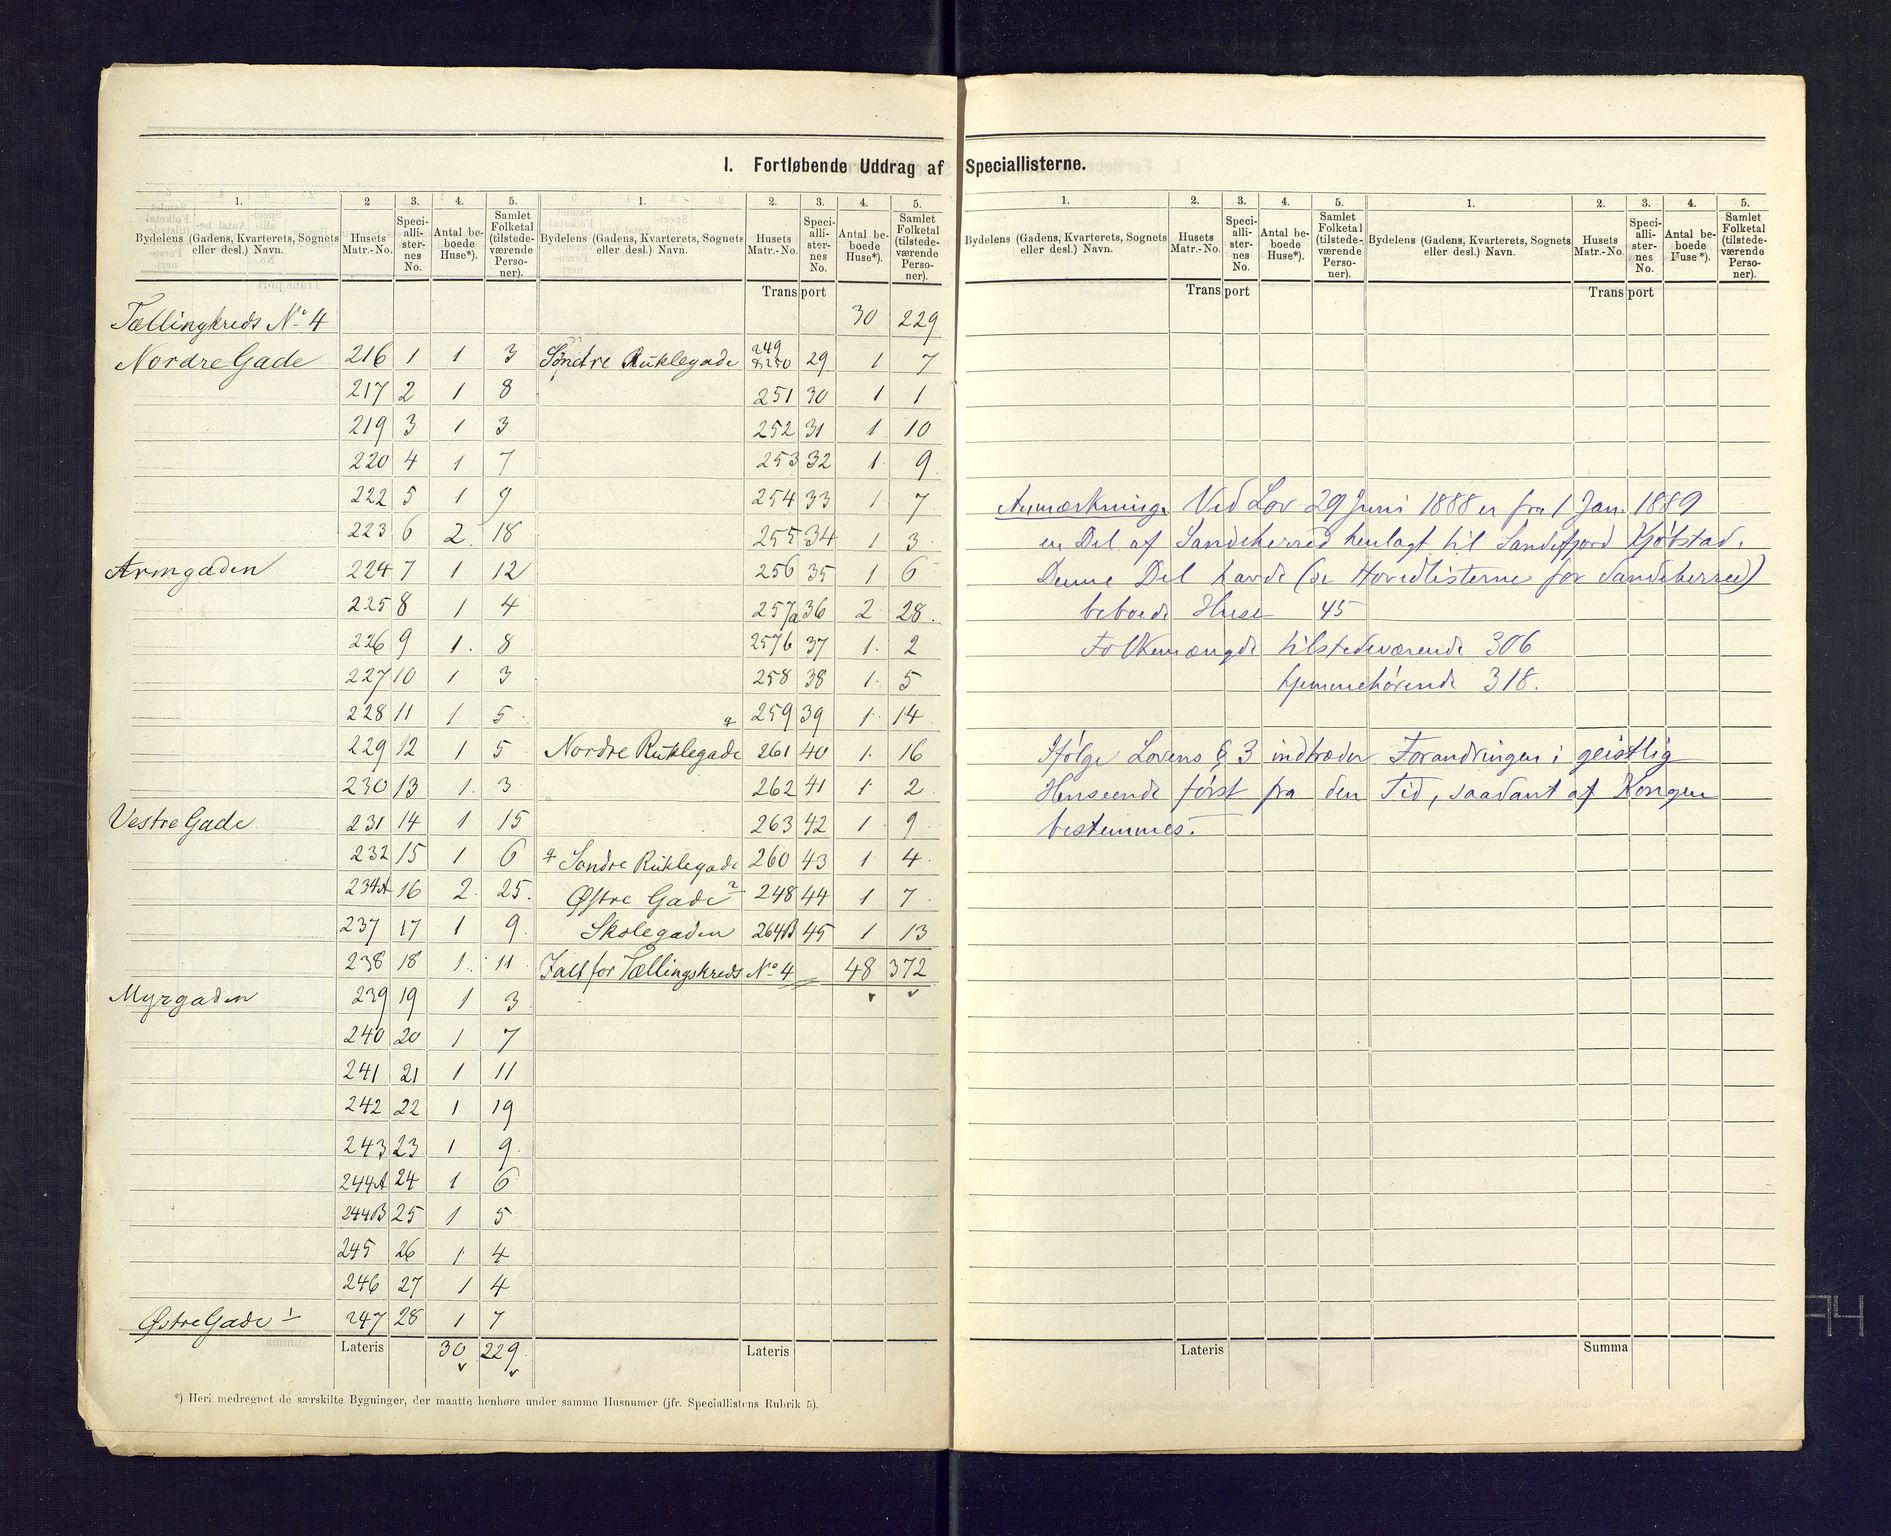 I. Fortløbende Uddrag af Speciallisterne.
1. 2 3. 4. 5. 1. 2. 3. 4. 5.
Bydelens (Gadens, Kvarterets, Sognets eller desl.) Navn. Husets Matr.-No. Speciallisternes No. Antal beboede Huse*). Samlet Folketal (tilstedeværende Personer). Bydelens (Gadens, Kvarterets, Sognets eller desl.) Navn. Husets Matr.-No. Speciallisternes No. Antal beboede Huse*). Samlet Folketal (tilstedeværende Personer).
Tællingkreds No 4
Nordre Gade 216 1 1 3
217 2 1 8
219 3 1 3
220 4 1 7
222 5 1 9
223 6 2. 18
Armgaden 224 7 1 12
225 8 1 4
226 9 1. 8
227 10 1 3
228 11 1 5
229 12 1 5
230 13 1. 3
Vestre Gade 231 14 1 15
232 15 1 6
234A 16 2. 25.
237 17 1 9
238 18 1. 11
Myrgaden 239 19 1 3
240 20 1 7
241 21 1 11
242 22 1 19
243 23 1 9
244A 24 1 6
244B 25 1 5
245 26 1 4
246 27 1 4
Østre Gade 1 247 28 1 7
Lateris 30 229
Transport 30 229
Søndre Ruklegade 249 & 250 29 1 7
251 30 1 1
252 31 1 10
253 32 1 9
254 33 1 7
255 34 1 3
256 35 1 6
257a 36 2 28.
257b 37 1. 2
258 38 1. 5
259 39 1. 14
Nordre Ruklegade 261 40 1. 16
262 41 1 2
263 42 1. 9
Søndre Ruklegade 260 43 1 4.
Østre Gade 2 248 44 1 7.
Skolegaden 264B 45 1 13
Ialt for Tællingskreds No 4 48 372
Lateris
*) Heri medregnet de særskilte Bygninger, der maatte henhøre under samme Husnumer (jfr. Speciallistens Rubrik 5).
1. 2. 3. 4. 5. 1. 2. 3. 4. 5.
Bydelens (Gadens, Kvarterets, Sognets eller desl.) Navn. Husets Matr.-No. Speciallisternes No. Antal beboede Huse*). Samlet Folketal (tilstedeværende Personer). Bydelens (Gadens, Kvarterets, Sognets eller desl.) Navn. Husets Matr.-No. Speciallisternes No. Antal beboede Huse*). Samlet Folketal (tilstedeværende Personer).
Transport Transport
Anmærkning. Ved Lov 29 Juni 1888 er fra 1 Jan. 1889
en Del af Sandeherred henlagt til Sandefjord Kjøbstad.
Denne Del havde (se Hovedlisterne for Sandeherred)
beboede Huse 45
Folkemængde tilstedeværende 306
hjemmehørende 318.
Ifølge Lovens § 3 indtræder Forandringen i geistlig
Henseende først fra den Tid, saadant af Kongen
bestemmes.
Lateris Summa